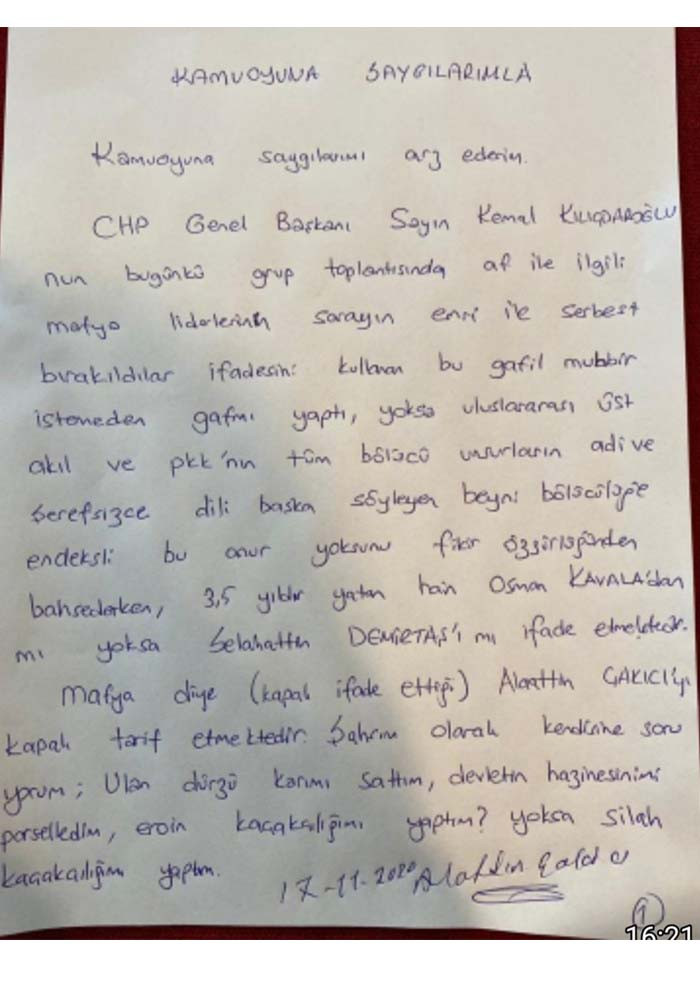 KAMUOYUNA SAYGILARIMLA
Kamuoyuna saygılarımı arz ederim.
CHP Genel Başkanı Sayın Kemal KILIÇDAROĞLU
nun bugünkü grup toplantısında af ile ilgili
mafya liderlerinin sarayın emri ile serbest
bırakıldılar ifadesini kullanan bu gafil muhbir
istemeden gafmı yaptı, yoksa uluslararası üst
akıl ve pkk'nın tüm bölücü unsurların adi ve
şerefsizce dili başka söyleyen beyni bölücülüğe
endeksli bu onur yoksunu fikir özgürlüğünden
bahsederken, 3,5 yıldır yatan hain Osman KAVALA'dan
mı yoksa Selahattin DEMİRTAŞ'ı mı ifade etmektedir.
Mafya diye (kapalı ifade ettiği) Alaattin ÇAKICI'yı
kapalı tarif etmektedir. Şahsım olarak kendisine soru
yorum; Ulan dürzü karımı sattım, devletin hazinesinimi
parselledim, eroin kaçakçılığımı yaptım? yoksa silah
kaçakçılığımı yaptım.
17-11-2020 Alaattin Çakıcı
1
16:21